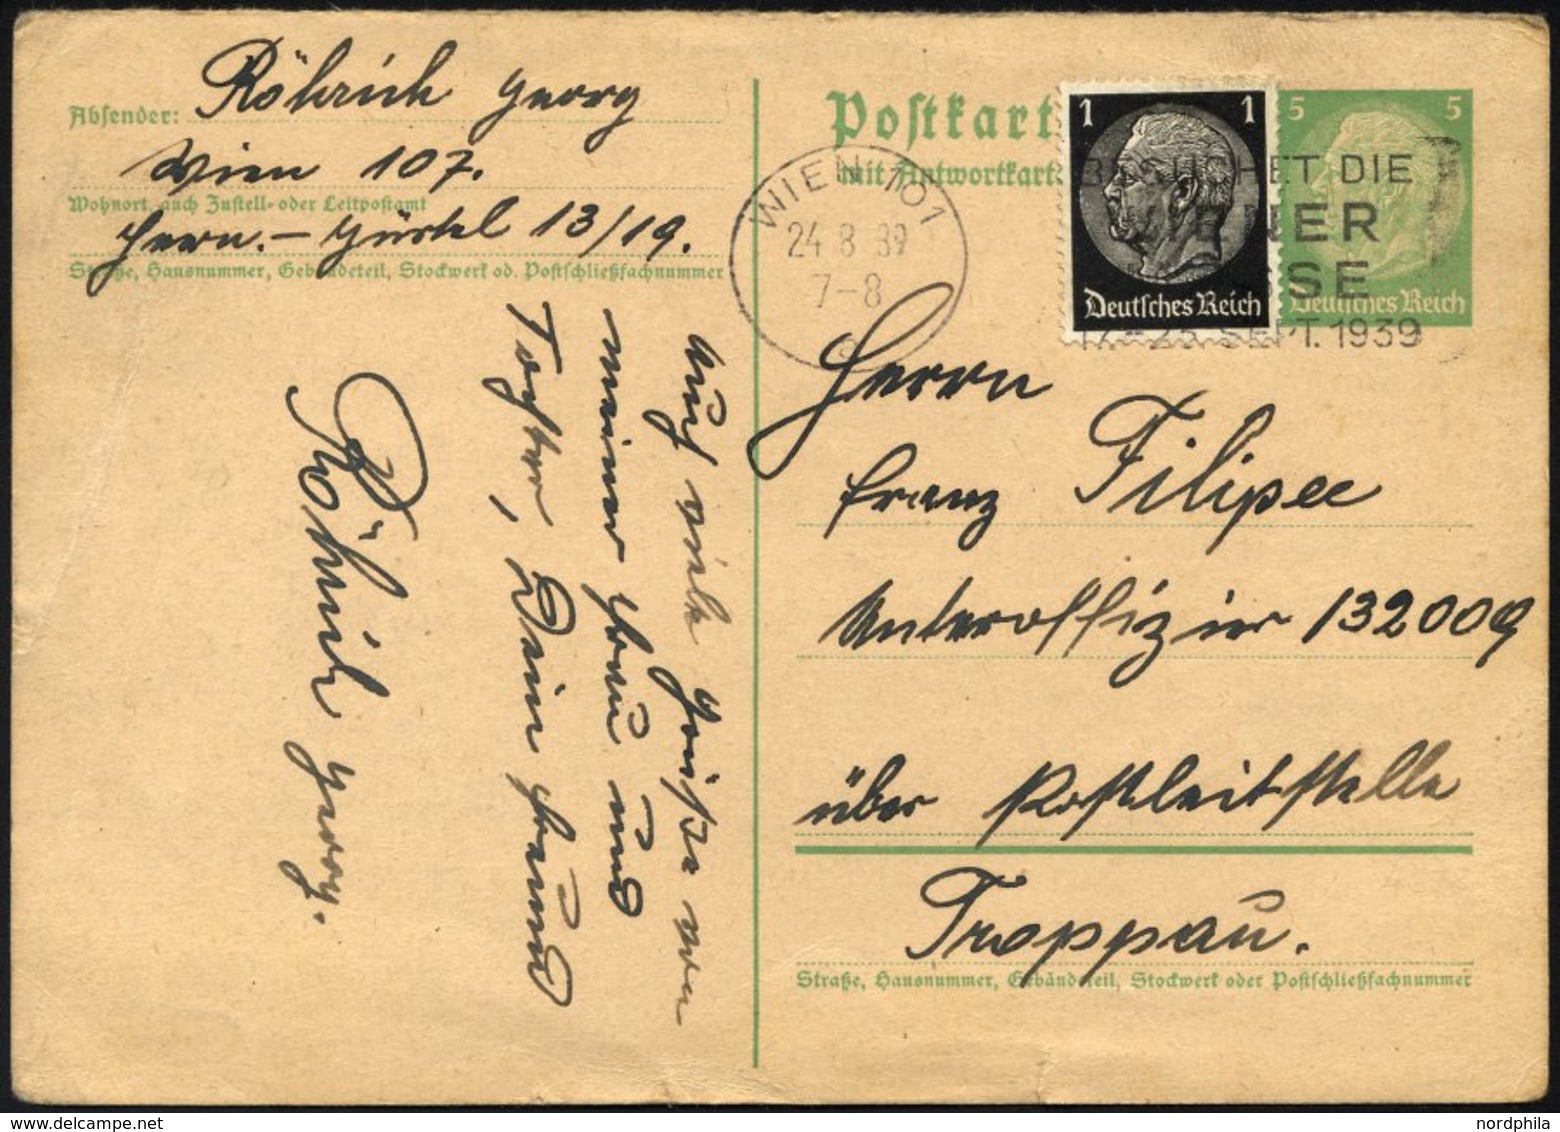 Absender: Röhrich Georg
Wien 107.
Wohnort, auch Zustell- oder Leitpostamt
Hern.-Gürtel 13/19.
Straße, Hausnummer, Gebäudeteil, Stockwerk od. Postschließfachnummer
Auch viele Grüße von
meiner Frau und
Tochter, Dein Freund
Röhrich Georg.
Postkart
mit Antwortkart
WIEN 101
24.8.39
7-8
1 1
Deutsches Reich
5 5
Deutsches Reich
BESUCHET DIE
WIENER
MESSE
17.-23. SEPT. 1939
Herrn
Franz Filipec
Unteroffizier 132009
über Postleitstelle
Troppau.
Straße, Hausnummer, Gebäudeteil, Stockwerk oder Postschließfachnummer
nordphila